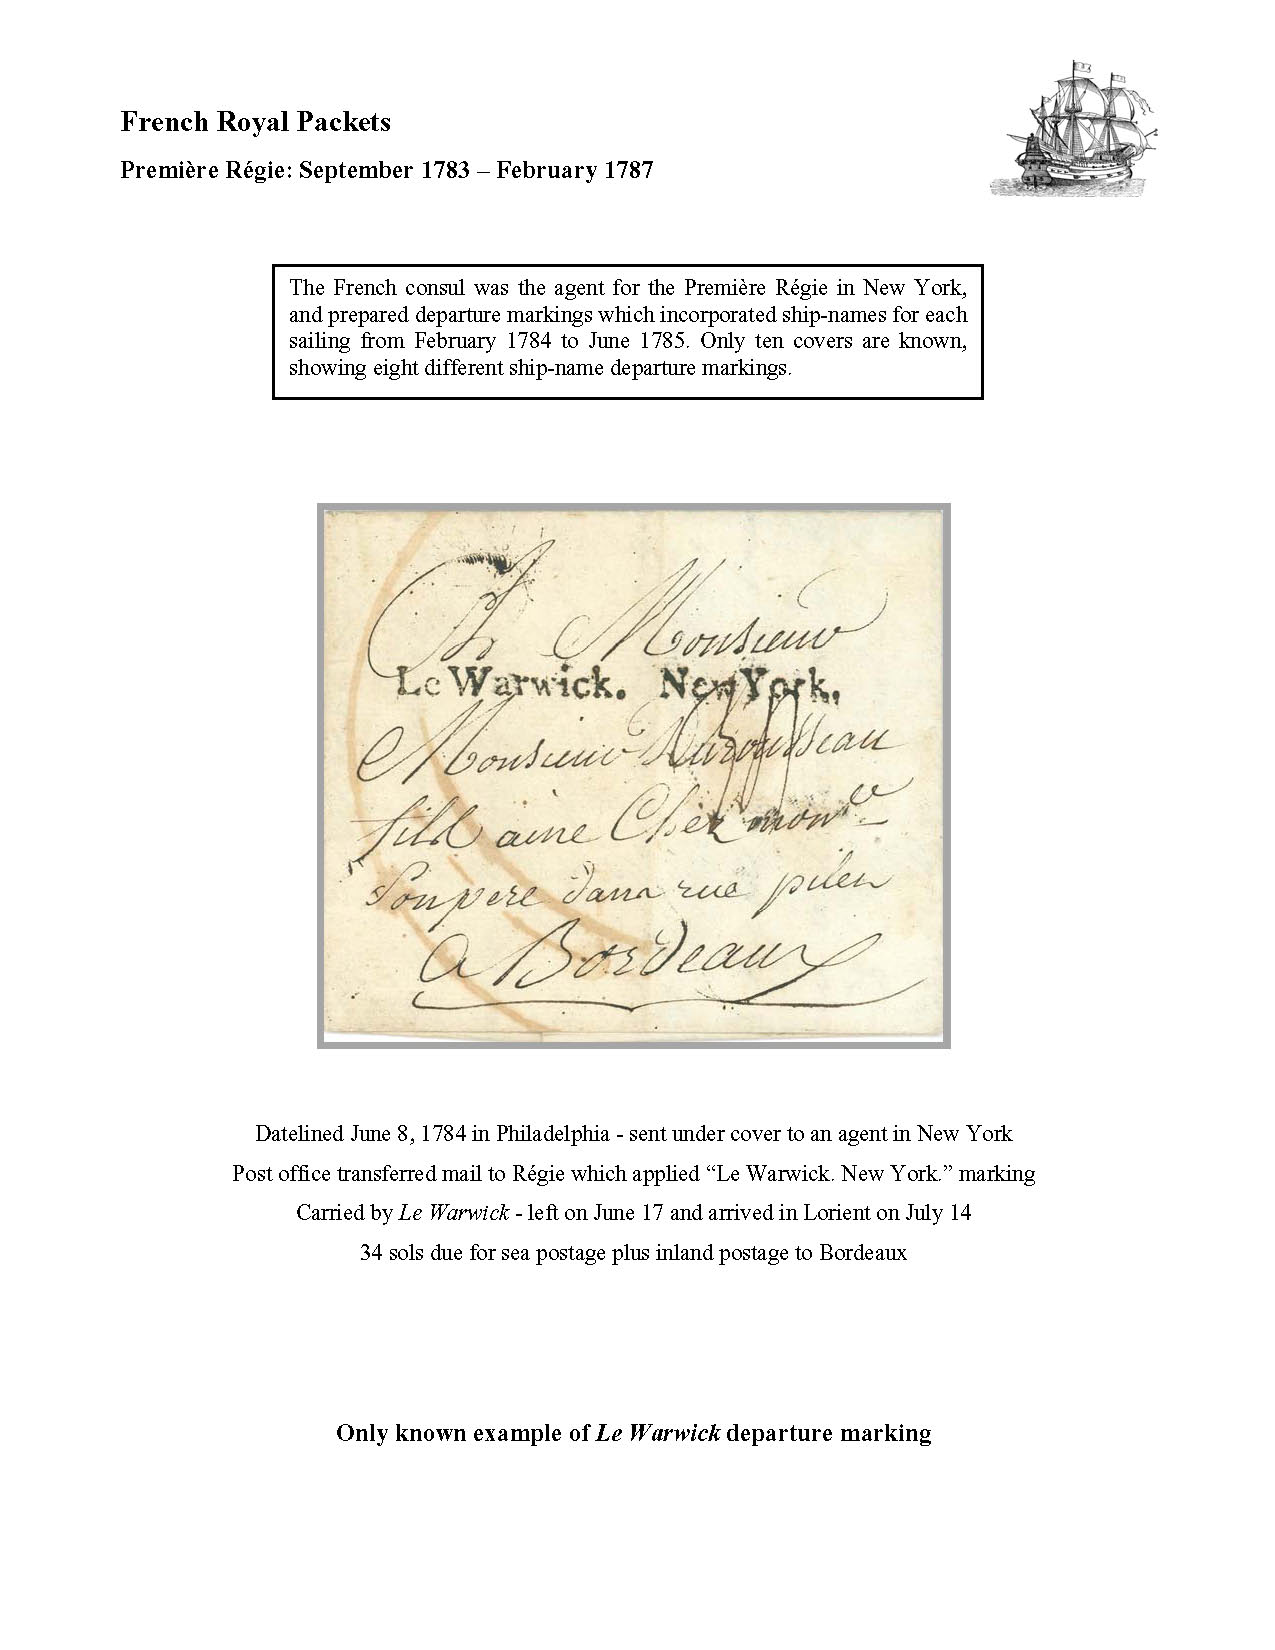 French Royal Packets
Première Régie: September 1783 – February 1787
The French consul was the agent for the Première Régie in New York,
and prepared departure markings which incorporated ship-names for each
sailing from February 1784 to June 1785. Only ten covers are known,
showing eight different ship-name departure markings.
A Monsieur
Le Warwick. New York.
Monsieur
fils ainé Chez
Son pere dans rue
a Bordeaux
Datelined June 8, 1784 in Philadelphia - sent under cover to an agent in New York
Post office transferred mail to Régie which applied “Le Warwick. New York.” marking
Carried by Le Warwick - left on June 17 and arrived in Lorient on July 14
34 sols due for sea postage plus inland postage to Bordeaux
Only known example of Le Warwick departure marking